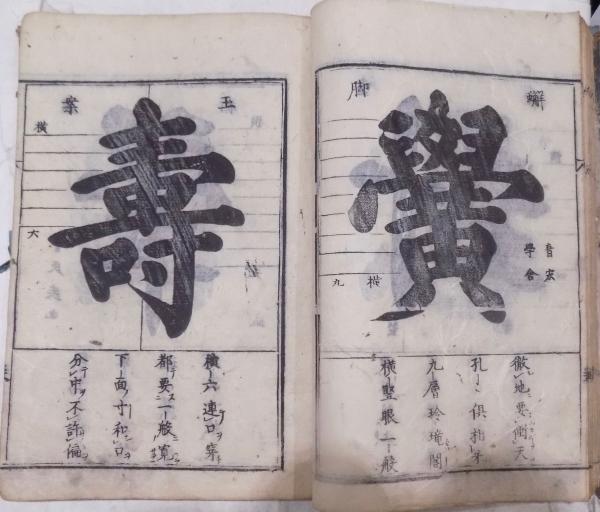 蠏
脚
黌
音宏
學舍
横
九
徹地要衝天
孔〻俱相等
九層玲瓏閣
横竪眼一般
玉
案
横
六
壽
横六連口穿
都要一般寛
下面寸和口
分中不許偏